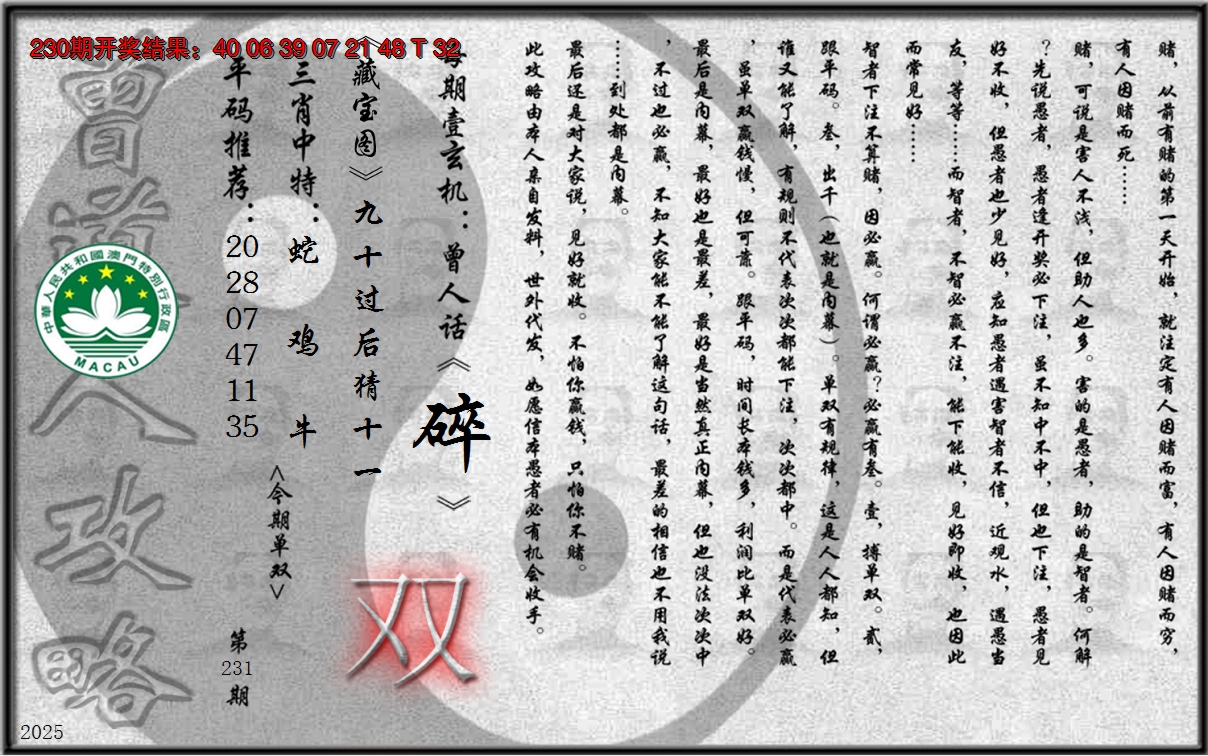 230期开奖结果：40 06 39 07 21 48 T 32
赌，从前有赌的第一天开始，就注定有人因赌而富，有人因赌而穷，
有人因赌而死……
赌，可说是害人不浅，但助人也多。害的是愚者，助的是智者。何解
？先说愚者，愚者逢开奖必下注，虽不知中不中，但也下注，愚者见
好不收，但愚者也少见好，应知愚者遇害智者不信，近观水，遇愚当
友，等等……而智者，不智必赢不注，能下能收，见好即收，也因此
而常见好……
智者下注不算赌，因必赢。何谓必赢？必赢有叁。壹，搏单双。贰，
跟平码。叁，出千（也就是内幕）。单双有规律，这是人人都知，但
谁又能了解，有规则不代表次次都能下注，次次都中。而是代表必赢
，虽单双赢钱慢，但可靠。跟平码，时间长本钱多，利润比单双好。
最后是内幕，最好也是最差，最好是当然真正内幕，但也没法次次中
，不过也必赢，不知大家能不能了解这句话，最差的相信也不用我说
……到处都是内幕。
最后还是对大家说，见好就收。不怕你赢钱，只怕你不赌。
此攻略由本人亲自发料，世外代发，如愿信本愚者必有机会收手。
每期壹玄机：曾人话《碎》
《藏宝图》九十过后猜十一
三肖中特：蛇 鸡 牛
平码推荐：20 28 07 47 11 35
<今期单双>
双
第231期
曾道人攻略
中華人民共和國澳門特別行政區
MACAU
2025